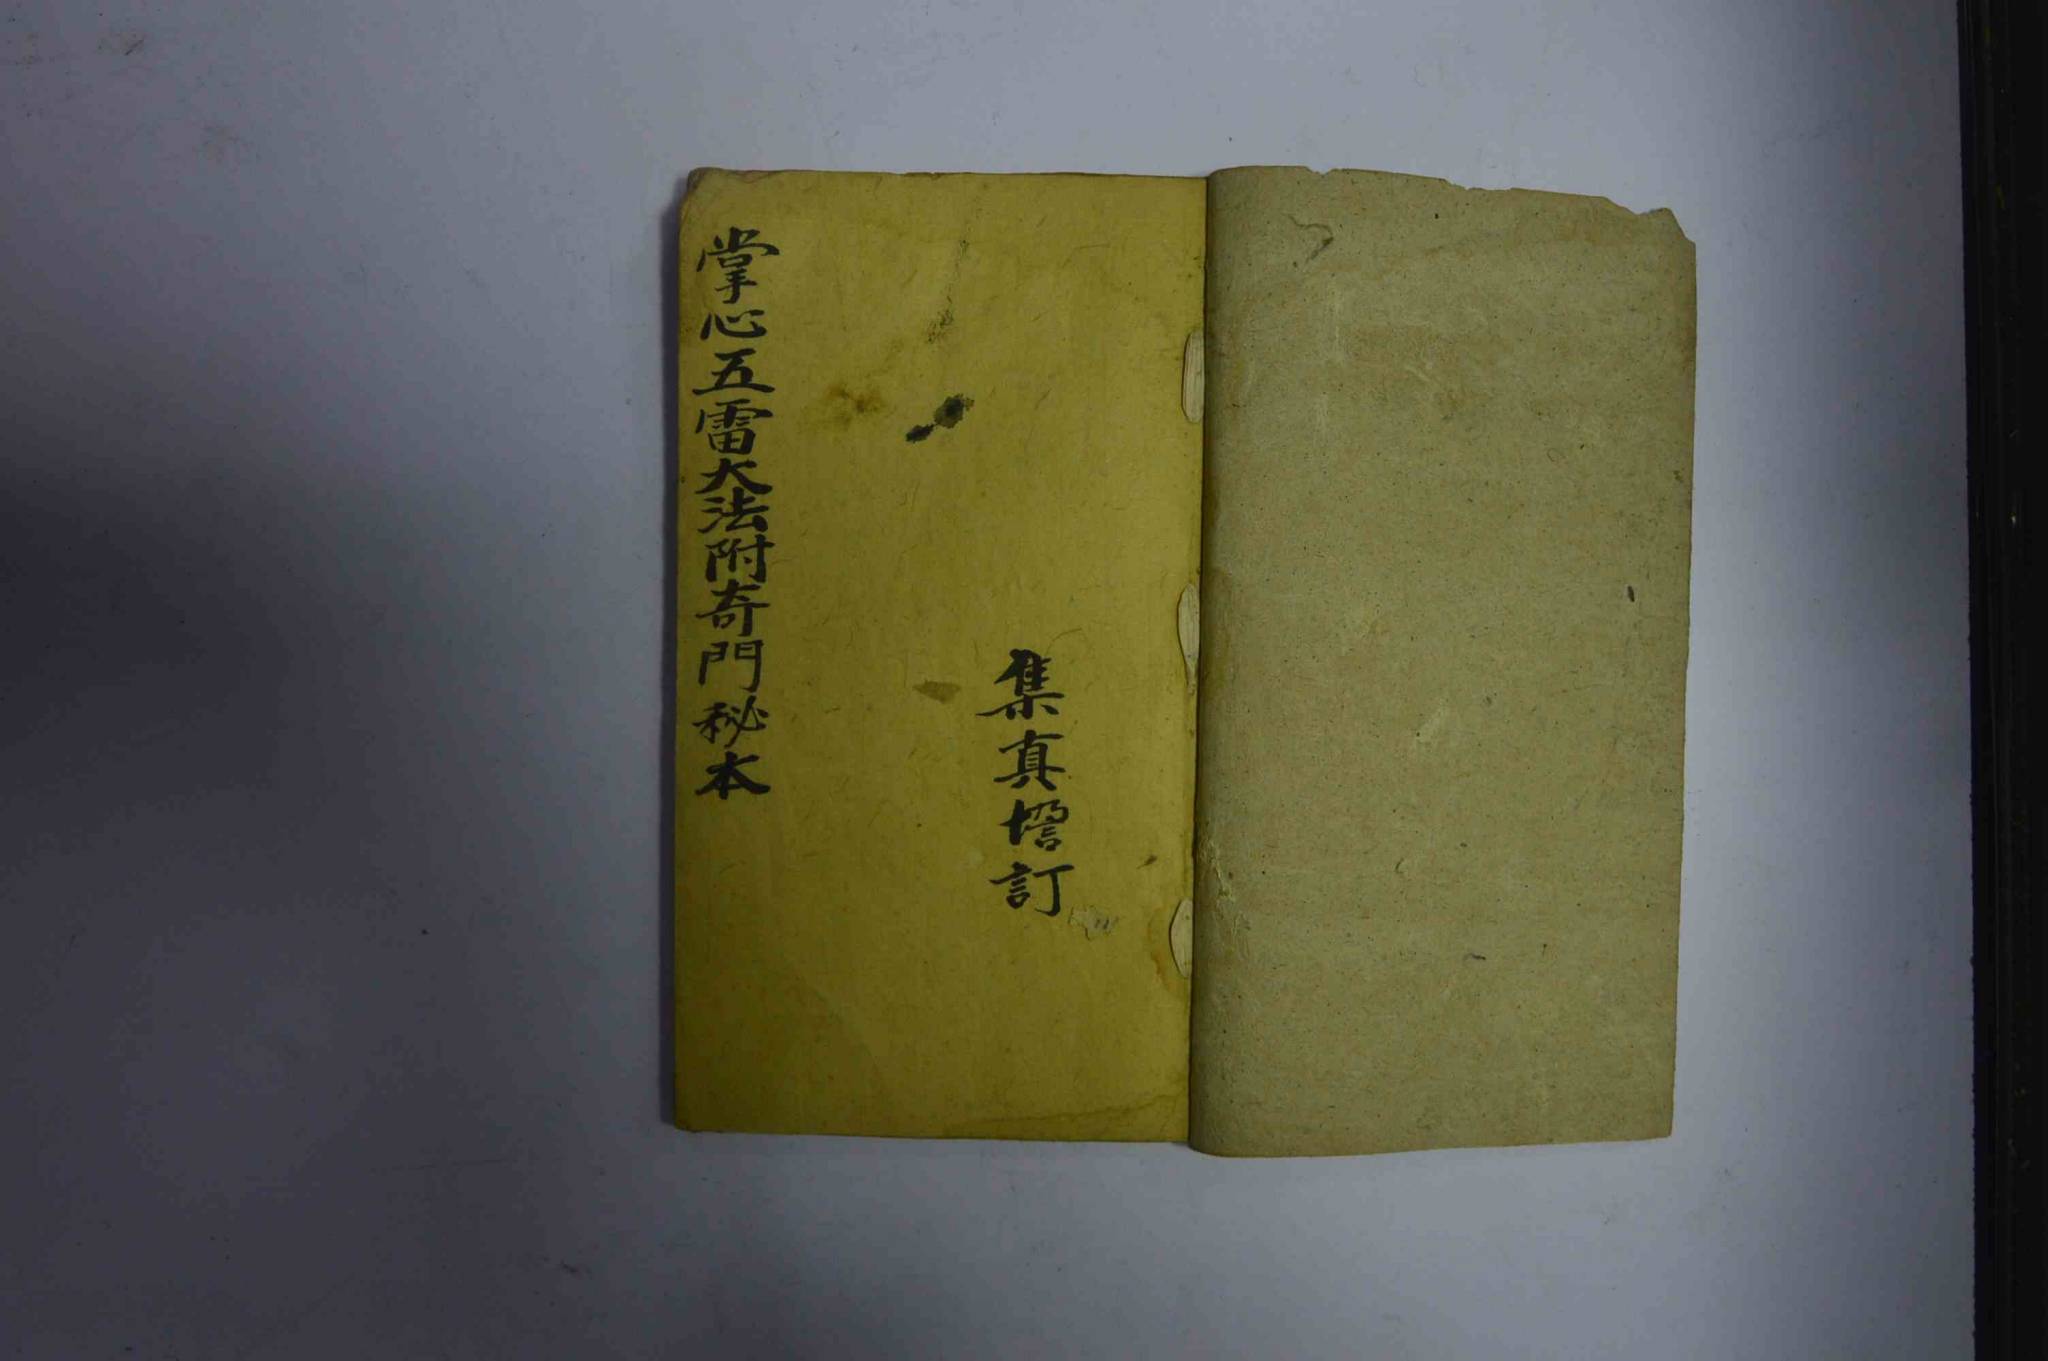 集真增訂
掌心五雷大法附奇門秘本